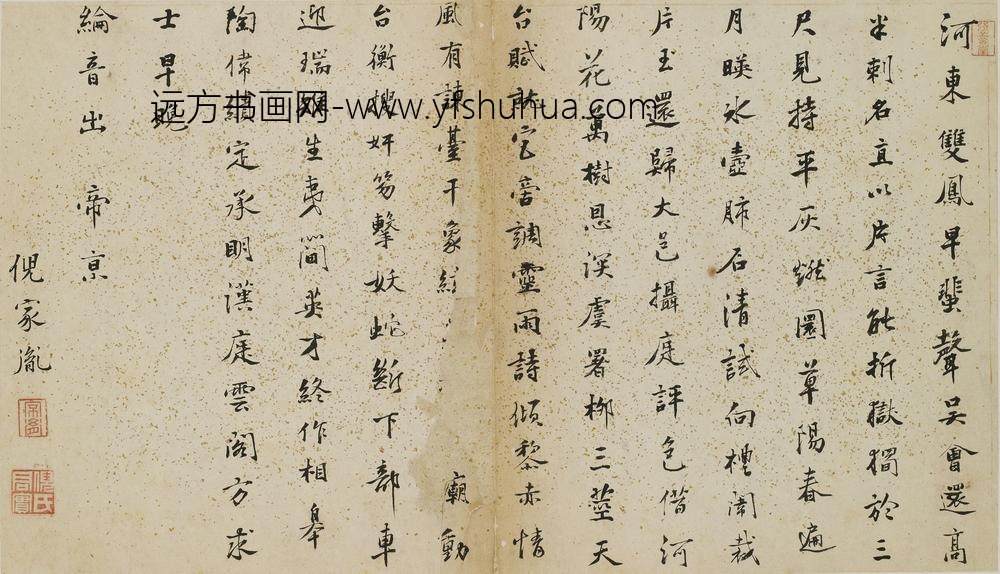 河東雙鳳早蜚聲吴會還高
半刺名直以片言能折獄獨於三
尺見持平灰燃圜草陽春遍
月暎冰壺肺石清試向禮闈裁
片玉還歸大邑攝庭評邑偕河
陽花萬樹恩深虞署柳三莖天
台賦就它音調靈雨詩傾黎赤情
風有諫臺干象緯 廟動
台衡搜奸笏擊妖蛇斷下部車
迎瑞生夷簡英才終作相皋
陶偉績定承明漢庭雲閣方求
士早晚
綸音出帝京
倪家胤
远方书画网-www.yishuhua.com